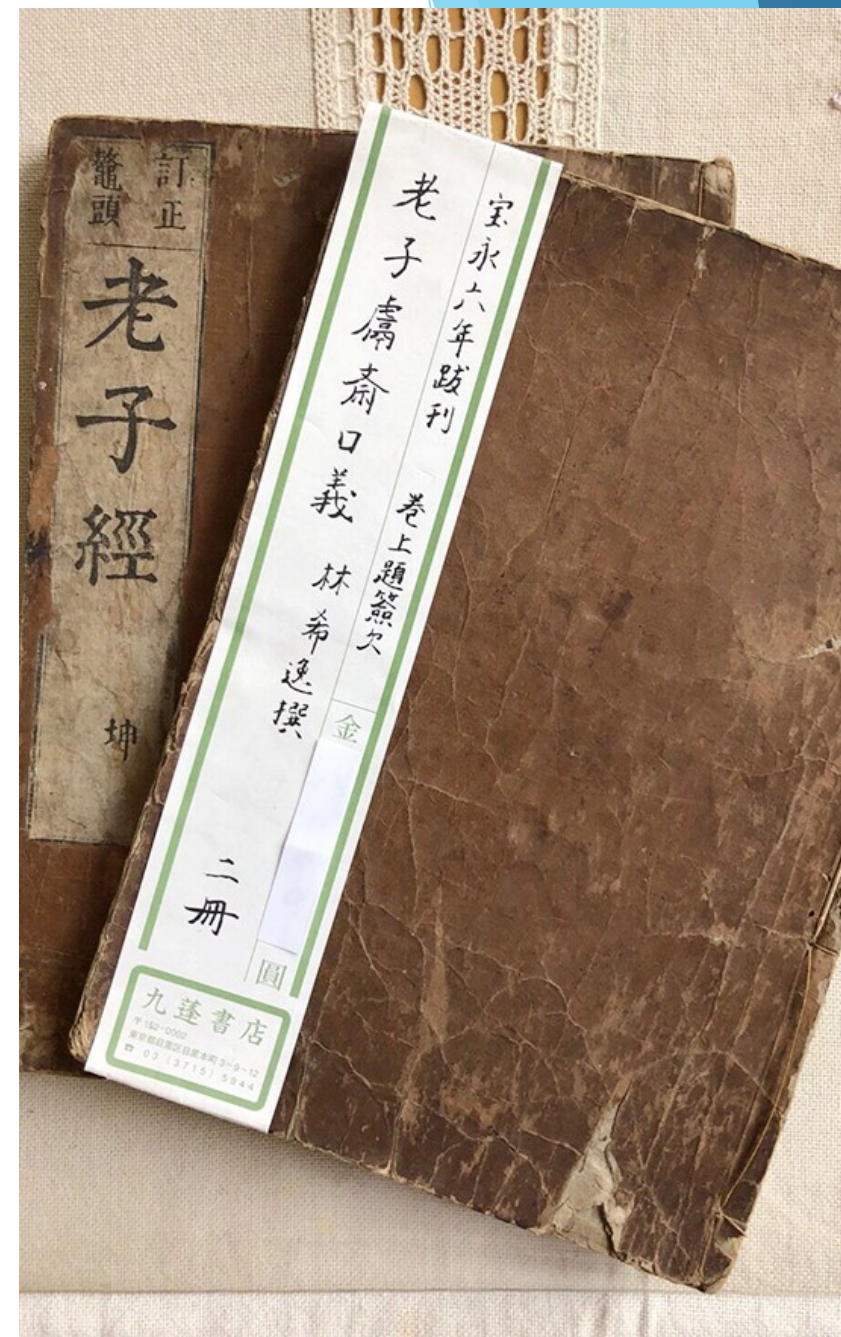 訂正
鼇頭
老子經
坤
宝永六年跋刊　巻上題簽欠
老子鬳斎口義　林希逸撰　二冊
金
圓
九蓬書店
〒152-0002
東京都目黒区目黒本町3-9-12
☎ 03 (3715) 5944